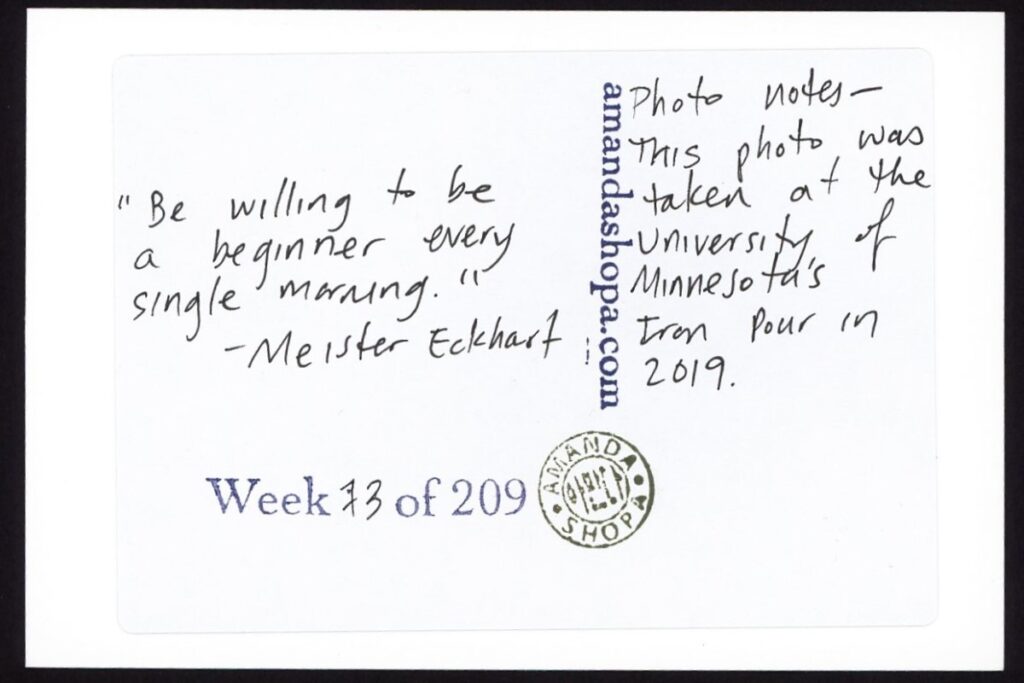 "Be willing to be
a beginner every
single morning."
-Meister Eckhart
amandashopa.com
Photo notes-
This photo was
taken at the
University of
Minnesota's
Iron Pour in
2019.
Week 73 of 209
AMANDA
SHOPA